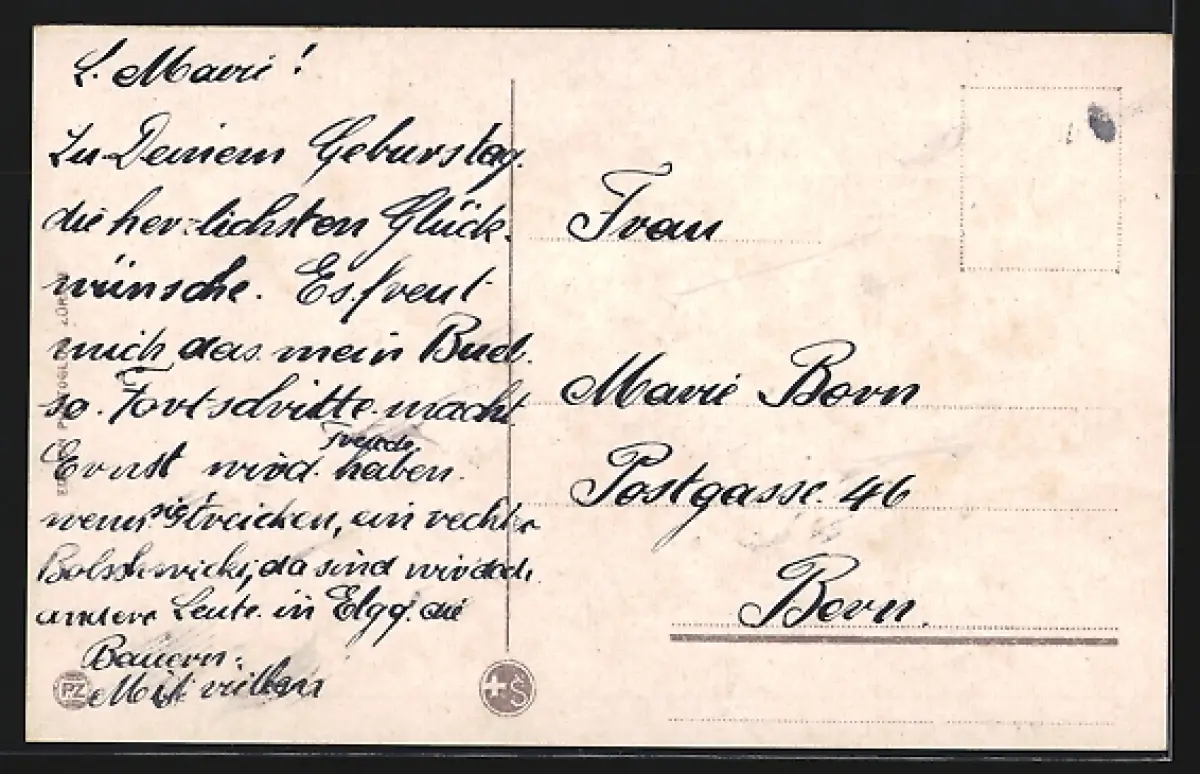 L. Marie!
Zu Deinem Geburstag.
die herzlichsten Glück-
wünsche. Es freut
mich das mein Bud.
so. Fortschritte macht
Freude
Ernst wird haben.
wenn sie streicken, ein rechter
Bolschwicki, da sind wir doch
andere Leute in Elgg. die
Bauern.
Mit vielen
Frau
Marie Born
Postgasse. 46
Bern.
PZ